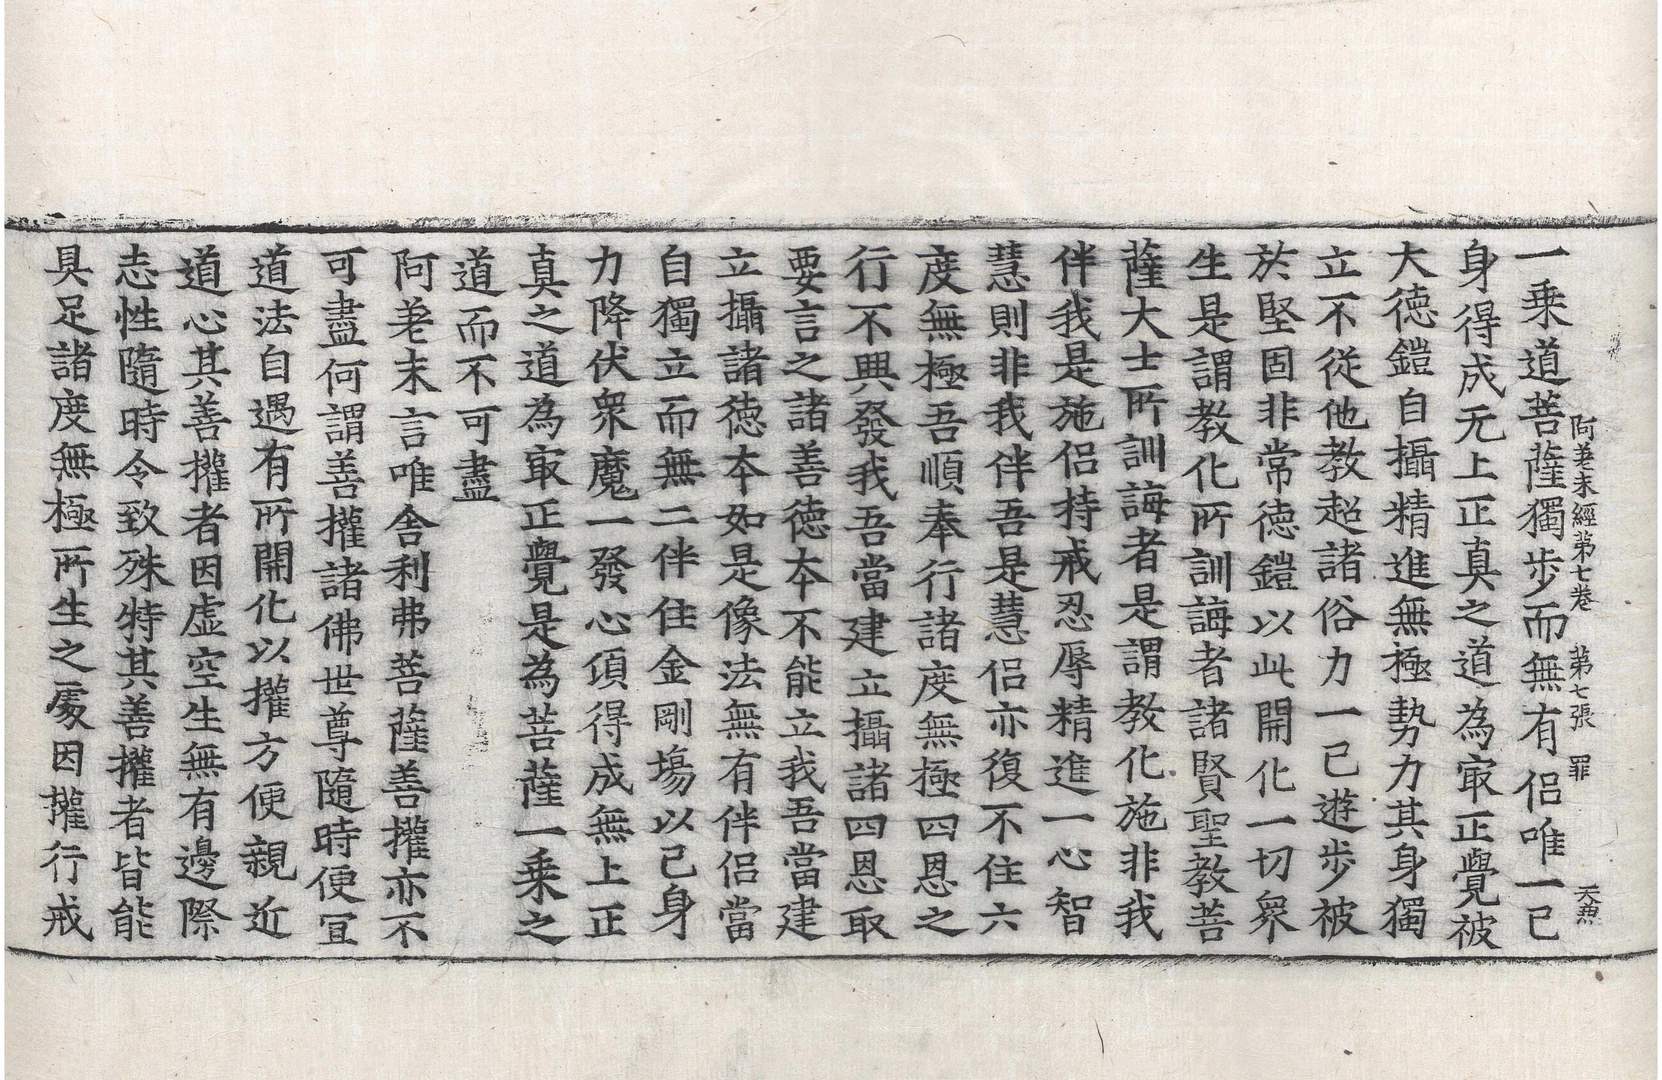 阿差末經第七卷 第七張 罪
天魚
一乘道菩薩獨步而無有侶唯一己
身得成无上正真之道為㝡正覺被
大徳鎧自攝精進無極勢力其身獨
立不從他教超諸俗力一己遊步被
於堅固非常徳鎧以此開化一切衆
生是謂教化所訓誨者諸賢聖教菩
薩大士所訓誨者是謂教化施非我
伴我是施侶持戒忍辱精進一心智
慧則非我伴吾是慧侶亦復不住六
度無極吾順奉行諸度無極四恩之
行不興發我吾當建立攝諸四恩取
要言之諸善徳夲不能立我吾當建
立攝諸徳夲如是像法無有伴侶當
自獨立而無二伴住金剛場以己身
力降伏衆魔一發心項得成無上正
真之道為㝡正覺是為菩薩一乗之
道而不可盡
阿差末言唯舍利弗菩薩善權亦不
可盡何謂善權諸佛世尊隨時便宜
道法自遇有所開化以權方便親近
道心其善權者因虛空生無有邊際
志性隨時令致殊特其善權者皆能
具足諸度無極所生之處因權行戒